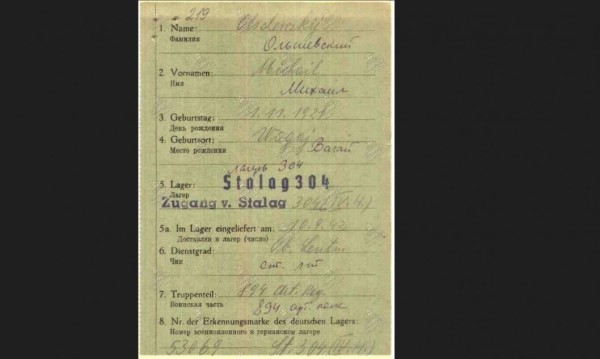 219
1. Name: Olschewskij
Фамилия Ольшевский
2. Vornamen: Michail
Имя Михаил
3. Geburtstag: 1.11.1921
День рождения
4. Geburtsort: Wagaj
Место рождения Вагай
лагерь 304
5. Lager: Stalag 304
Лагерь
Zugang v. Stalag 304 (IV H)
5a. Im Lager eingeliefert am:
Доставлен в лагерь (число)
6. Dienstgrad: Ob. Leutn.
Чин ст. лт
7. Truppenteil: 894 Art. Reg.
Воинская часть 894 арт. полк
8. Nr. der Erkennungsmarke des deutschen Lagers:
Номер военнопленного в германском лагере
53069 St. 304 (IV H)